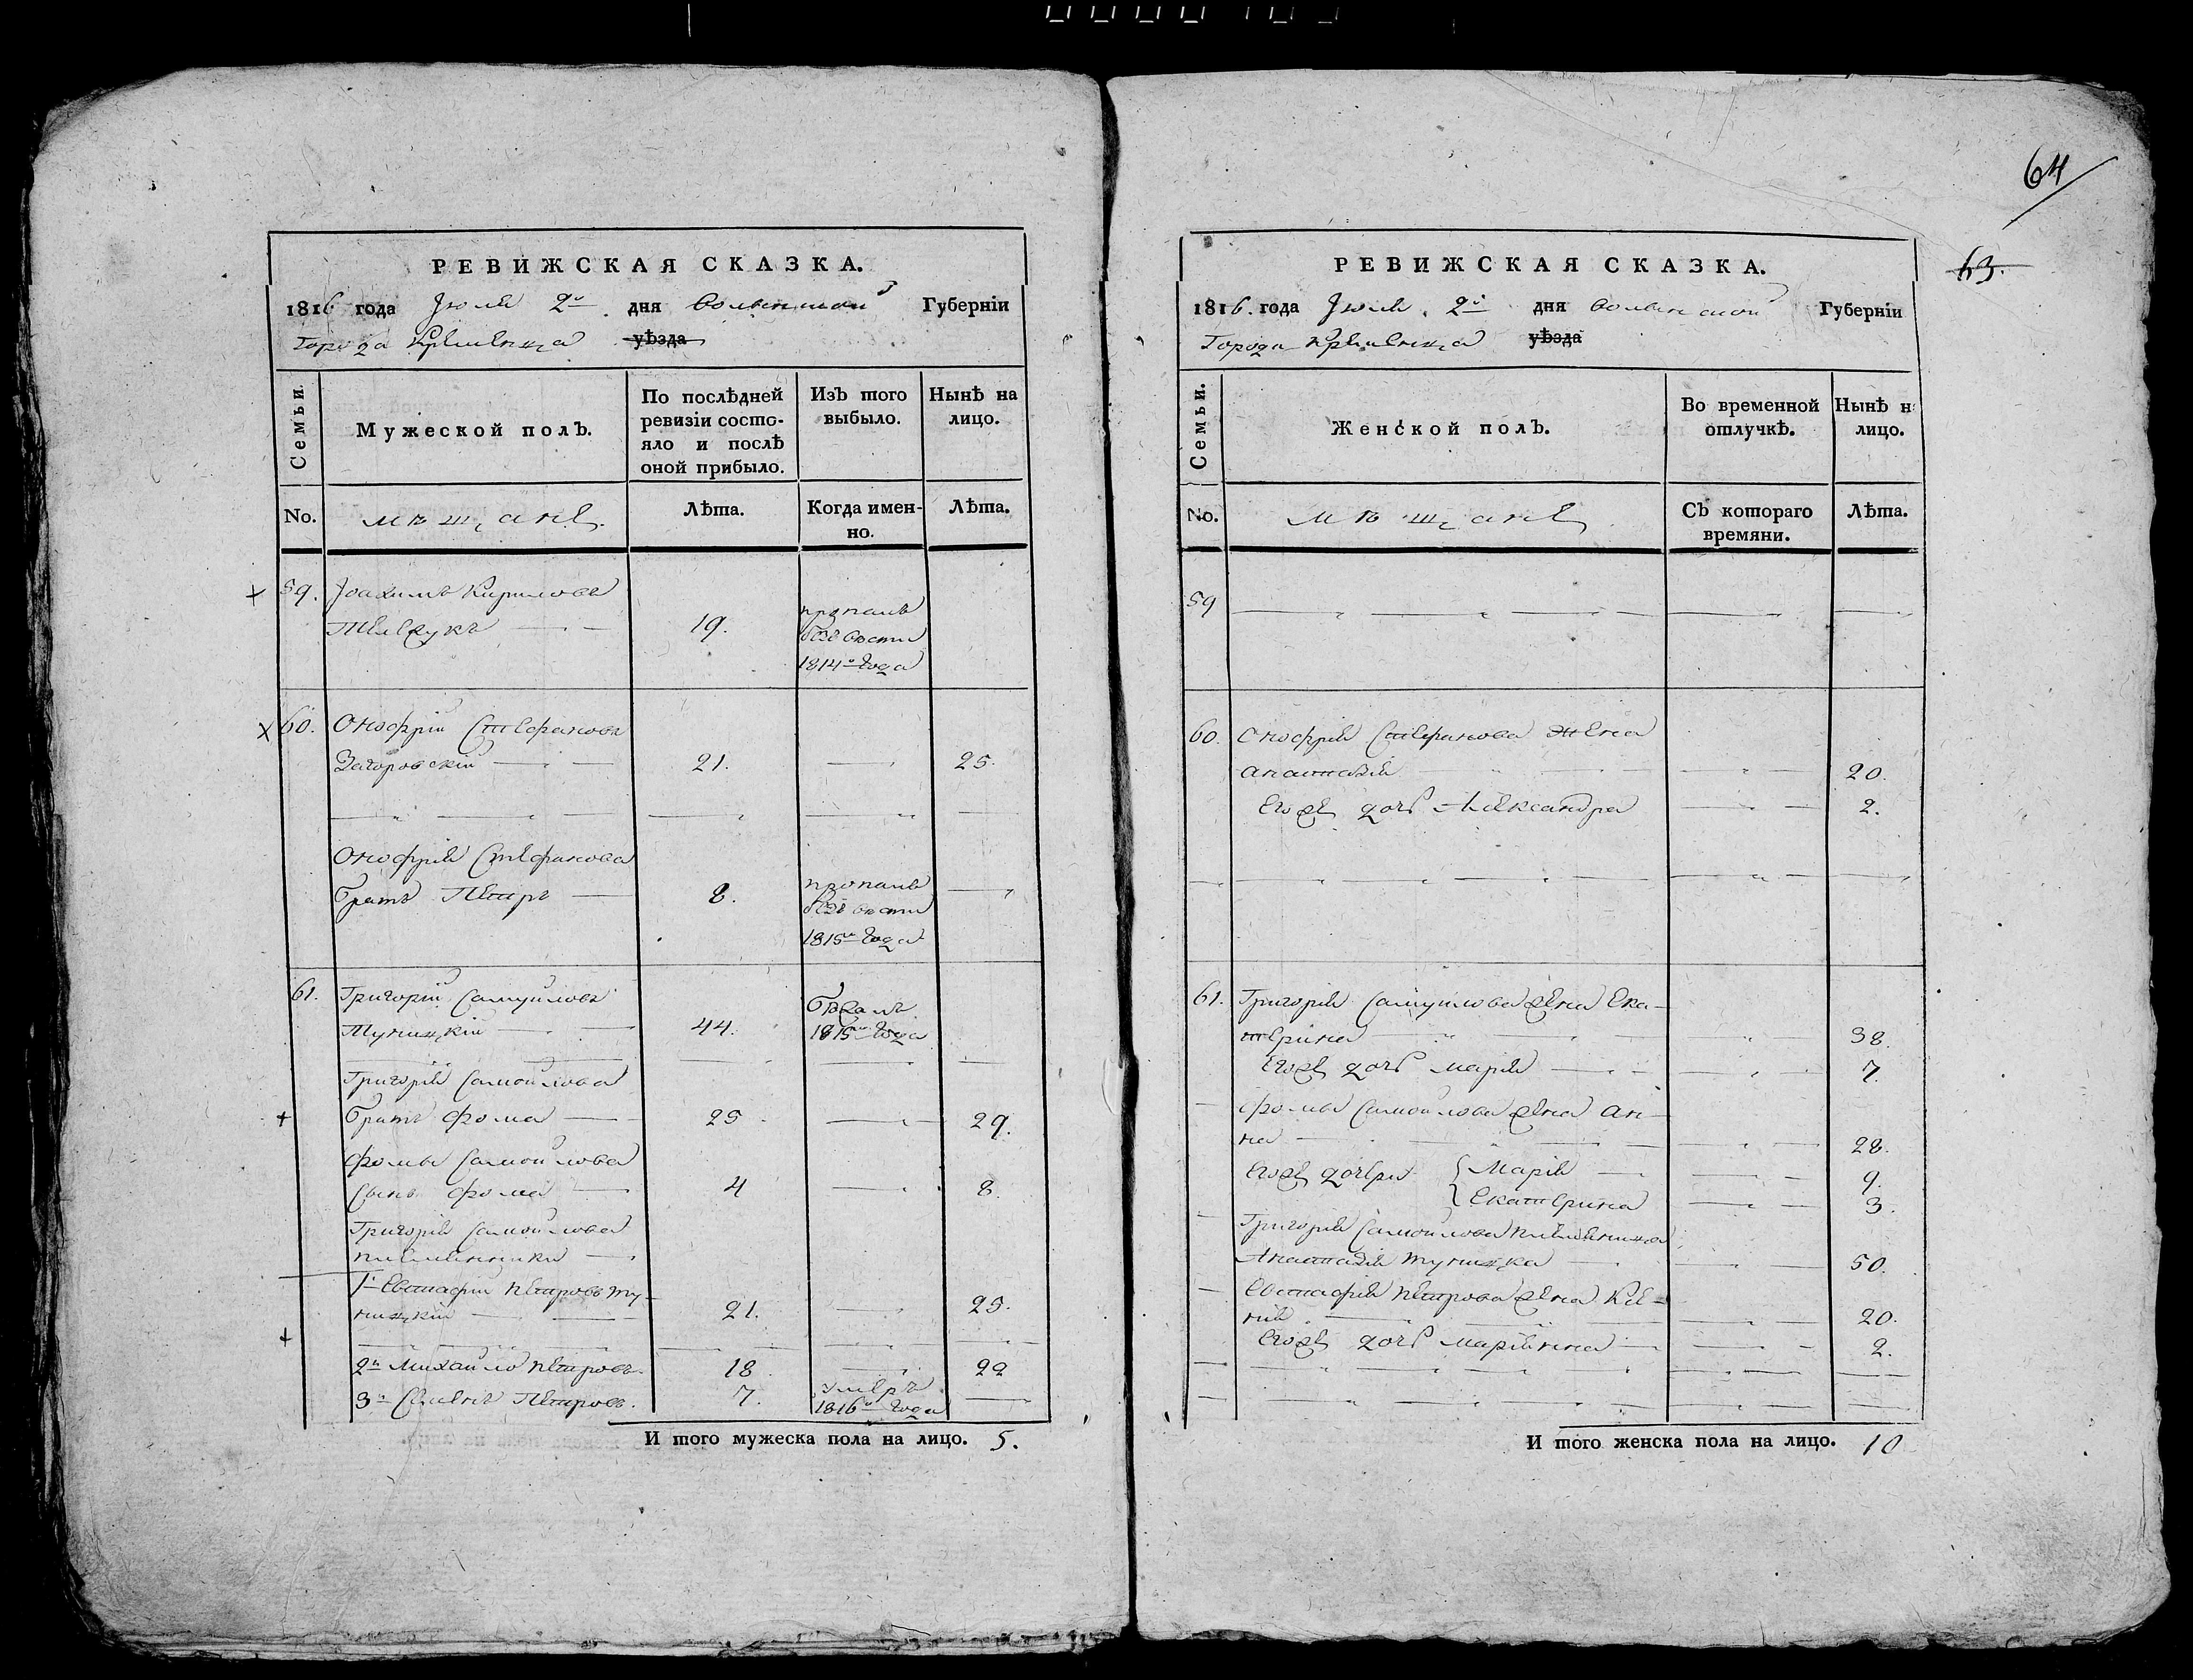 64
63.
РЕВИЖСКАЯ СКАЗКА.
1816 года Июля 2го дня Волынской Губерніи
Города Кременца уѣзда
Семьи.
Мужеской полъ.
По послѣдней
ревизіи состо-
яло и послѣ
оной прибыло.
Изъ того
выбыло.
Нынѣ на
лицо.
No.
мѣщане
Лѣта.
Когда имен-
но.
Лѣта.
59. Іоахимъ Кириловъ
19.
пропалъ
безъ вести
1814го года
60. Онофрій Стефановъ
Загоровскій 21. 25.
Онофрія Стефанова
братъ Петръ 8.
пропалъ
безъ вести
1815го года
61. Григорій Самуиловъ
Туницкій 44.
бежалъ
1815го года
Григорія Самойлова
братъ Фома 25 29.
Фомы Самойлова
сынъ Фома 4 8.
Григорія Самойлова
племянники
1й Евстафій Петровъ Ту-
ницкій 21. 25.
2й Михайло Петровъ 18 22
3й Семенъ Петровъ. 7.
умеръ
1816го года
И того мужеска пола на лицо. 5.
РЕВИЖСКАЯ СКАЗКА.
1816. года Июля 2го дня Волынской Губерніи
Города Кременца уѣзда
Семьи.
Женской полъ.
Во временной
отлучкѣ.
Нынѣ н
лицо.
No.
мѣщане
Съ котораго
времяни.
Лѣта.
59
60. Онофрія Стефанова жена
Анастазія 20.
Егожъ дочь Александра 2.
61. Григорія Самуилова жена Ека-
терина 38.
Егожъ дочь Марія 7.
Фомы Самойлова жена Ан-
на 28.
Егожъ дочери Марія 9.
Екатерина 3.
Григорія Самойлова племяница
Анастазія Туницка 50.
Евстафія Петрова жена Ксе-
нія 20.
Егожъ дочь Маріянна 2.
И того женска пола на лицо. 10